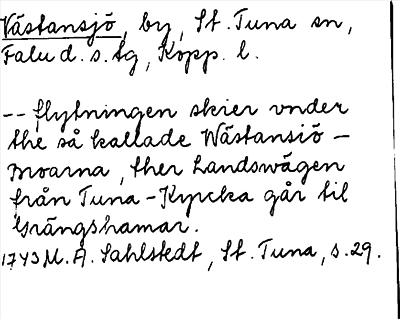 Västansjö, by, St. Tuna sn,
Falu d.s. tg, Kopp. l.
-- flytningen skier vnder
the så kallade Wästansiö-
moarna, ther Landswägen
från Tuna-Kyrcka går til
Grängshamar.
1743 M.A. Sahlstedt, St. Tuna, s.29.